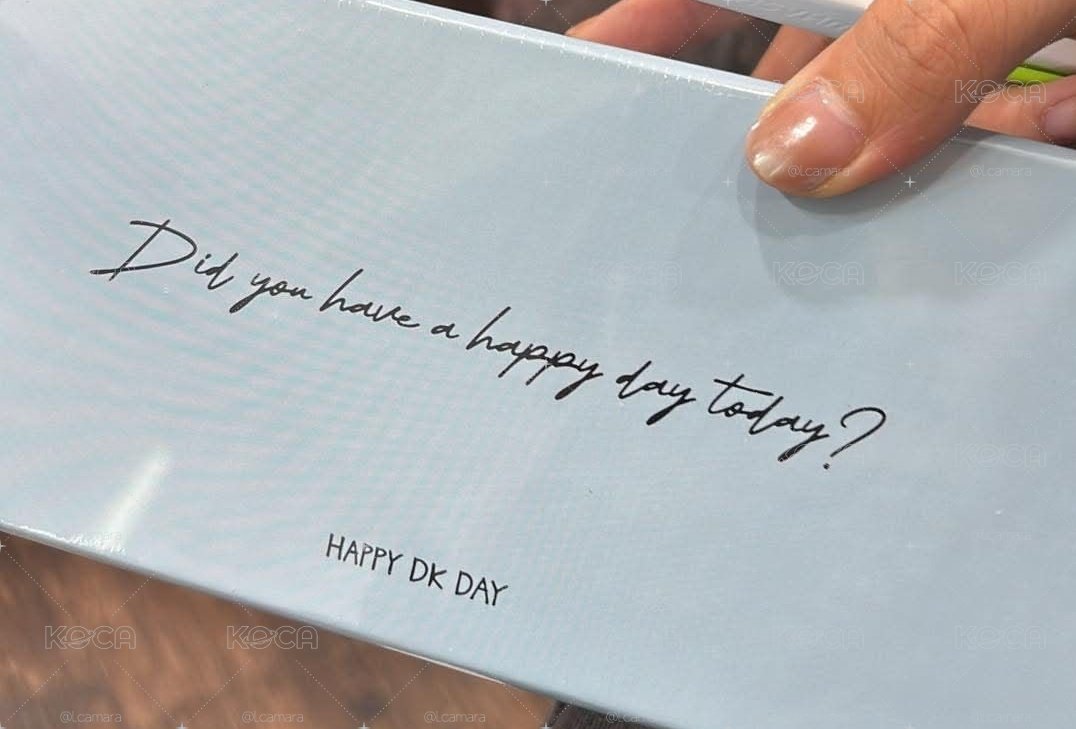 Did you have a happy day today?
HAPPY DK DAY
KOCA
@l.camara